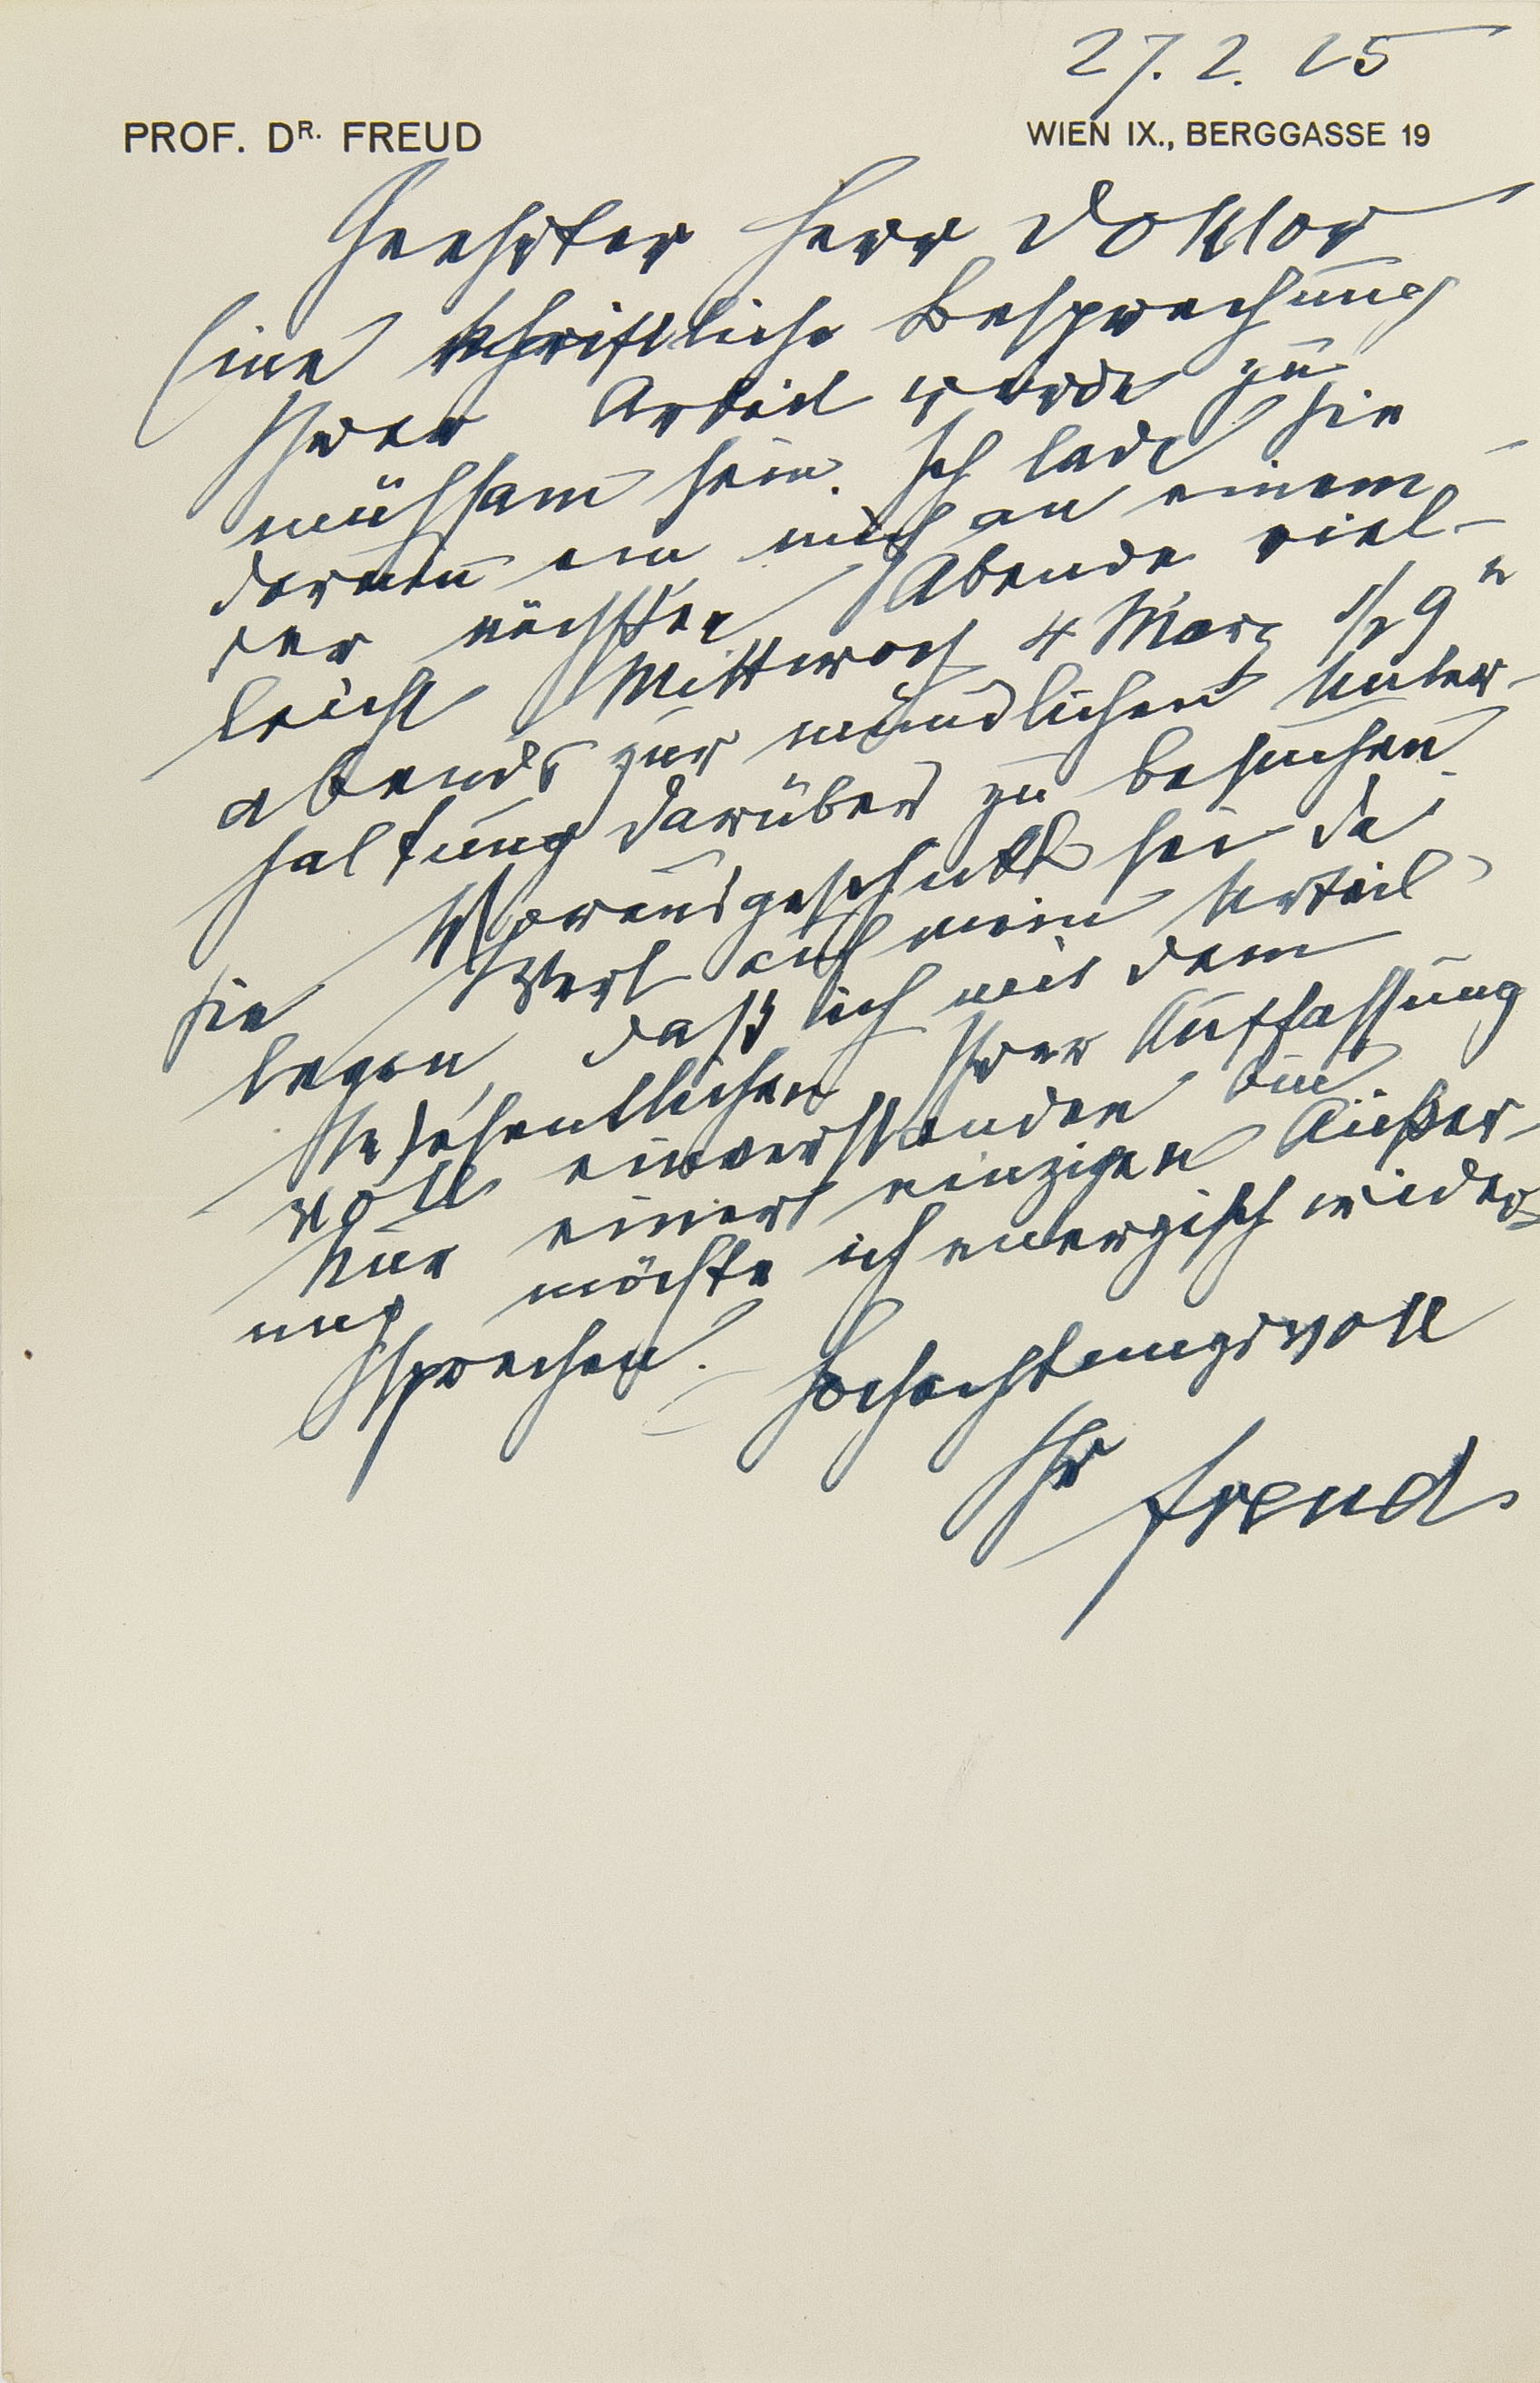 27. 2. 25
PROF. DR. FREUD WIEN IX., BERGGASSE 19
Geehrter Herr Doktor
Eine schriftliche Besprechung
Ihrer Arbeit würde zu
mühsam sein. Ich lade Sie
darum ein mich an einem
der nächsten Abende viel-
leicht Mittwoch 4 März 1/2 9 h
abends zur mündlichen Unter-
haltung darüber zu besuchen.
Vorausgeschickt sei da
Sie Wert auf mein Urteil
legen, daß ich mit dem
Wesentlichen Ihrer Auffassung
voll einverstanden bin.
Nur einer einzigen Äußer-
ung möchte ich energisch wider-
sprechen.
Hochachtungsvoll
Ihr Freud